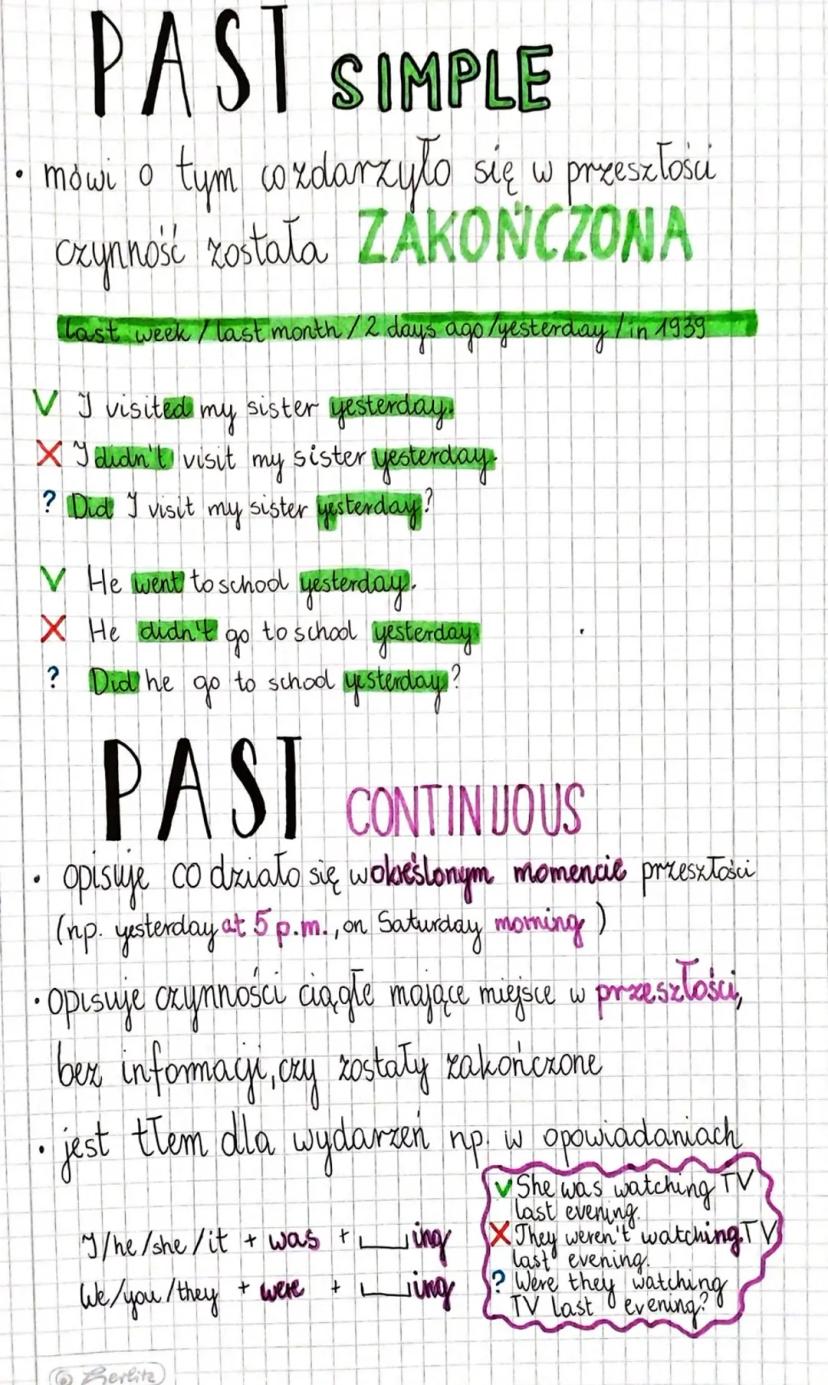 PAST SIMPLE
• mówi o tym co zdarzyło się w przeszłości
czynność została ZAKOŃCZONA
last week / last month / 2 days ago / yesterday / in 1939
V I visited my sister yesterday.
X I didn't visit my sister yesterday.
? Did I visit my sister yesterday?
V He went to school yesterday.
X He didn't go to school yesterday
? Did he go to school yesterday?
PAST CONTINUOUS
• opisuje co działo się w określonym momencie przeszłości
(np. yesterday at 5 p.m., on Saturday morning)
• opisuje czynności ciągłe mające miejsce w przeszłości,
bez informacji, czy zostały zakończone
• jest tłem dla wydarzeń np. w opowiadaniach
I/he/she/it + was + ___ing
We/you/they + were + ___ing
V She was watching TV
last evening.
X They weren't watching TV
last evening.
? Were they watching
TV last evening?
@ Berlitz